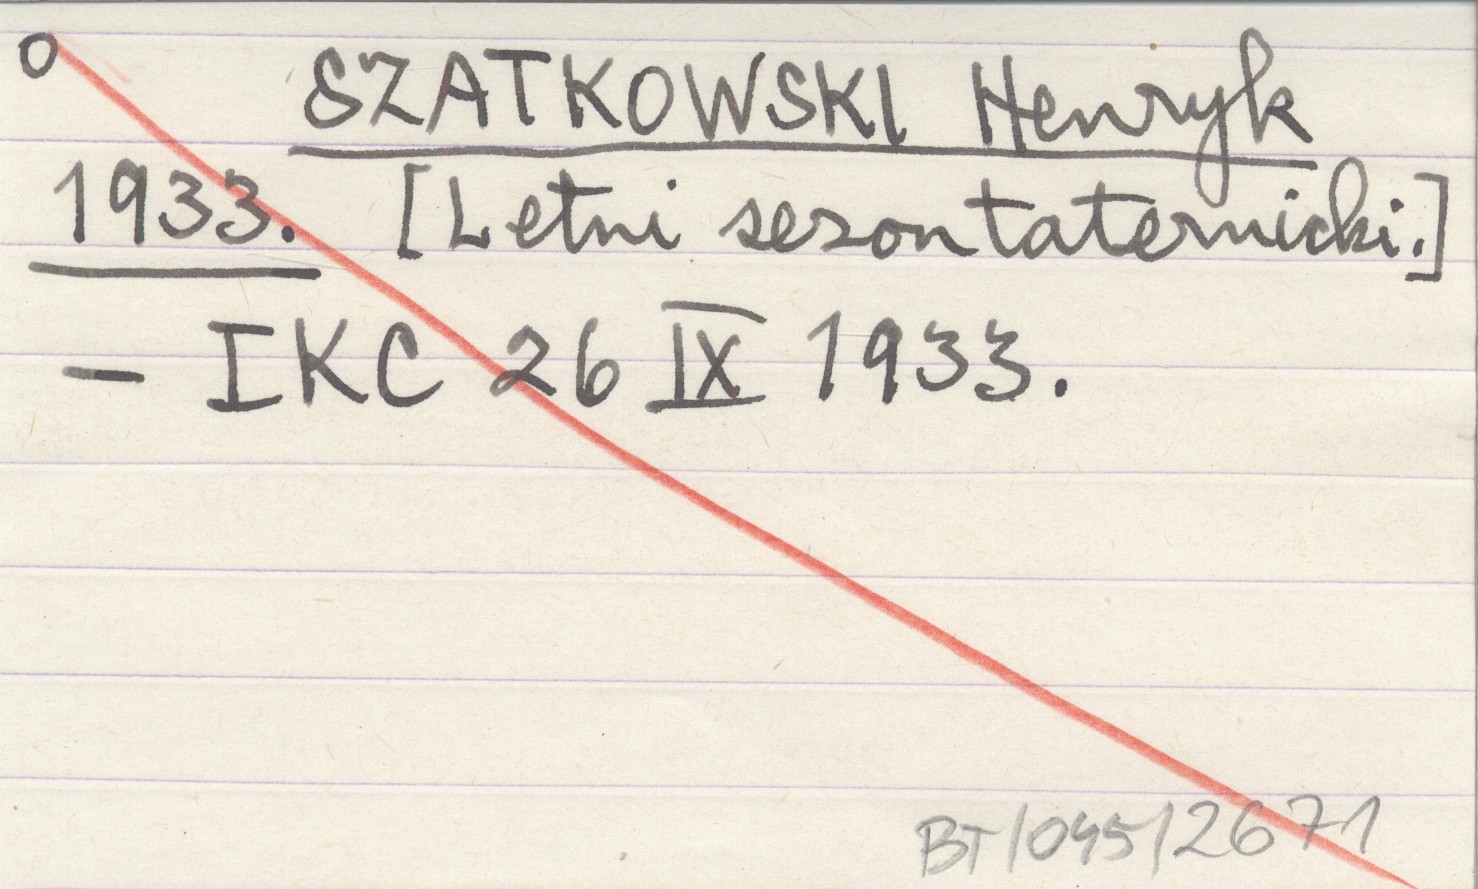 O
SZATKOWSKI Henryk
1933. [Letni sezon taternicki.]
– IKC 26 IX 1933.
BT/045/2671